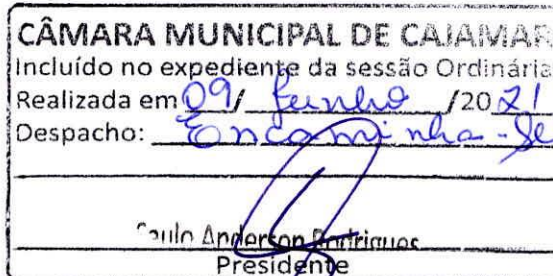 CÂMARA MUNICIPAL DE CAJAMAR
Incluído no expediente da sessão Ordinária
Realizada em 09/ Junho /2021
Despacho: Encaminha-se
Paulo Anderson Rodrigues
Presidente